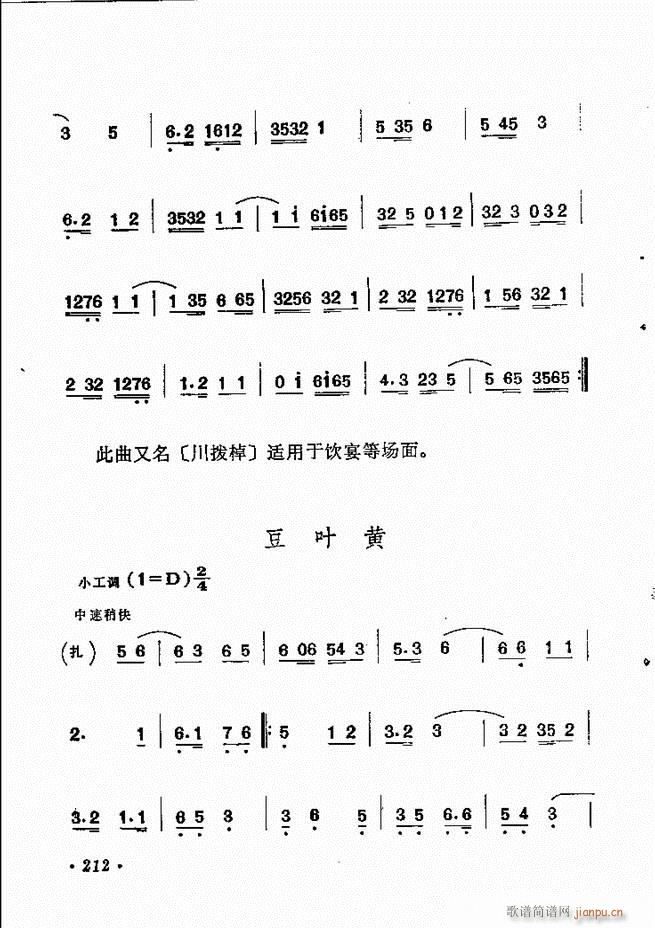 3 5 | 6.2 1612 | 3532 1 | 5 35 6 | 5 45 3 |
6.2 1 2 | 3532 1 1 | 1 i 6i65 | 32 5 0 1 2 | 32 3 0 3 2 |
1276 1 1 | 1 35 6 65 | 3256 32 1 | 2 32 1276 | 1 56 32 1 |
2 32 1276 | 1.2 1 1 | 0 i 6i65 | 4.3 23 5 | 5 65 3565 :||
此曲又名〔川拨棹〕适用于饮宴等场面。
豆叶黄
小工调(1=D)2/4
中速稍快
(扎) 5 6 | 6 3 6 5 | 6 06 54 3 | 5.3 6 | 6 6 1 1 |
2. 1 | 6.1 7 6 ||: 5 1 2 | 3.2 3 | 3 2 35 2 |
3.2 1.1 | 6 5 3 | 3 6 5 | 3 5 6.6 | 5 4 3 |
·212·
歌谱简谱网
jianpu.cn